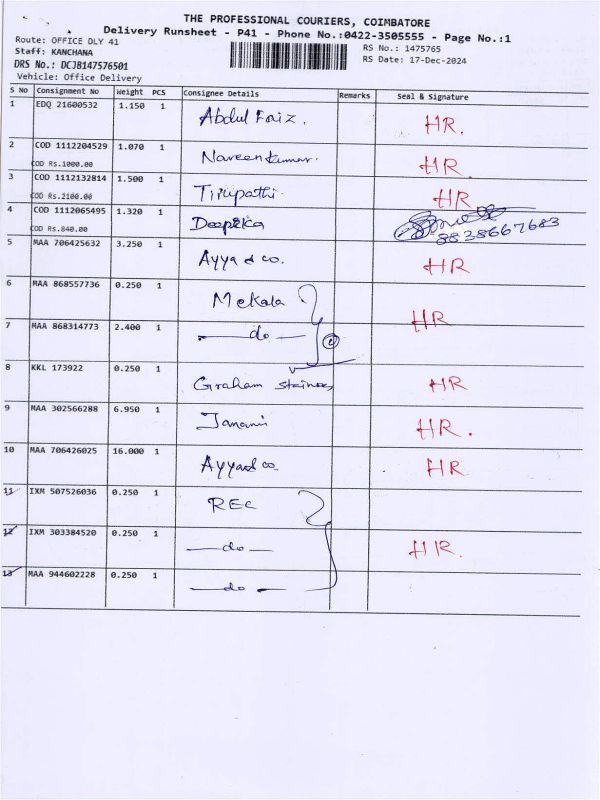 THE PROFESSIONAL COURIERS, COIMBATORE
Delivery Runsheet - P41 - Phone No.:0422-3505555 - Page No.:1
Route: OFFICE DLY 41 RS No.: 1475765
Staff: KANCHANA RS Date: 17-Dec-2024
DRS No.: DCJB147576501
Vehicle: Office Delivery
S No Consignment No Weight PCS Consignee Details Remarks Seal & Signature
1 EDQ 21600532 1.150 1 Abdul Faiz. HR.
2 COD 1112204529 1.070 1 Naveen Kumar. HR.
COD Rs.1000.00
3 COD 1112132814 1.500 1 Tirupathi HR
COD Rs.2100.00
4 COD 1112065495 1.320 1 Deepika
COD Rs.840.00 8838667683
5 MAA 706425632 3.250 1 Ayya & co. HR
6 MAA 868557736 0.250 1 Mekala HR
7 MAA 868314773 2.400 1 do
8 KKL 173922 0.250 1 Graham Staines HR
9 MAA 302566288 6.950 1 Janani HR.
10 MAA 706426025 16.000 1 Ayya & co HR
11 IXM 507526036 0.250 1 REC
12 IXM 303384520 0.250 1 do HR.
13 MAA 944602228 0.250 1 do